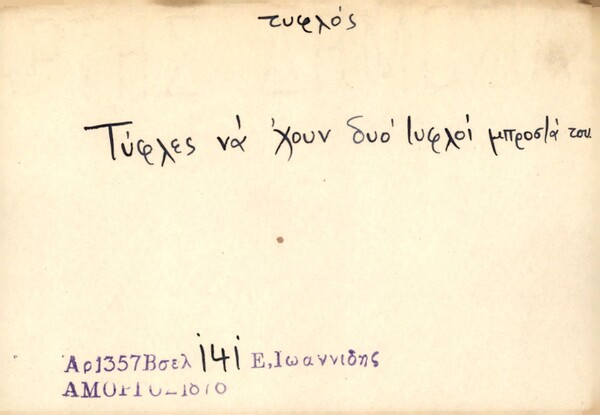 τυφλός
Τύφλες νά 'χουν δυό τυφλοί μπροστά του
Αρ1357Βσελ 141 Ε,Ιωαννιδης
ΑΜΟΡΓΟΣ1876